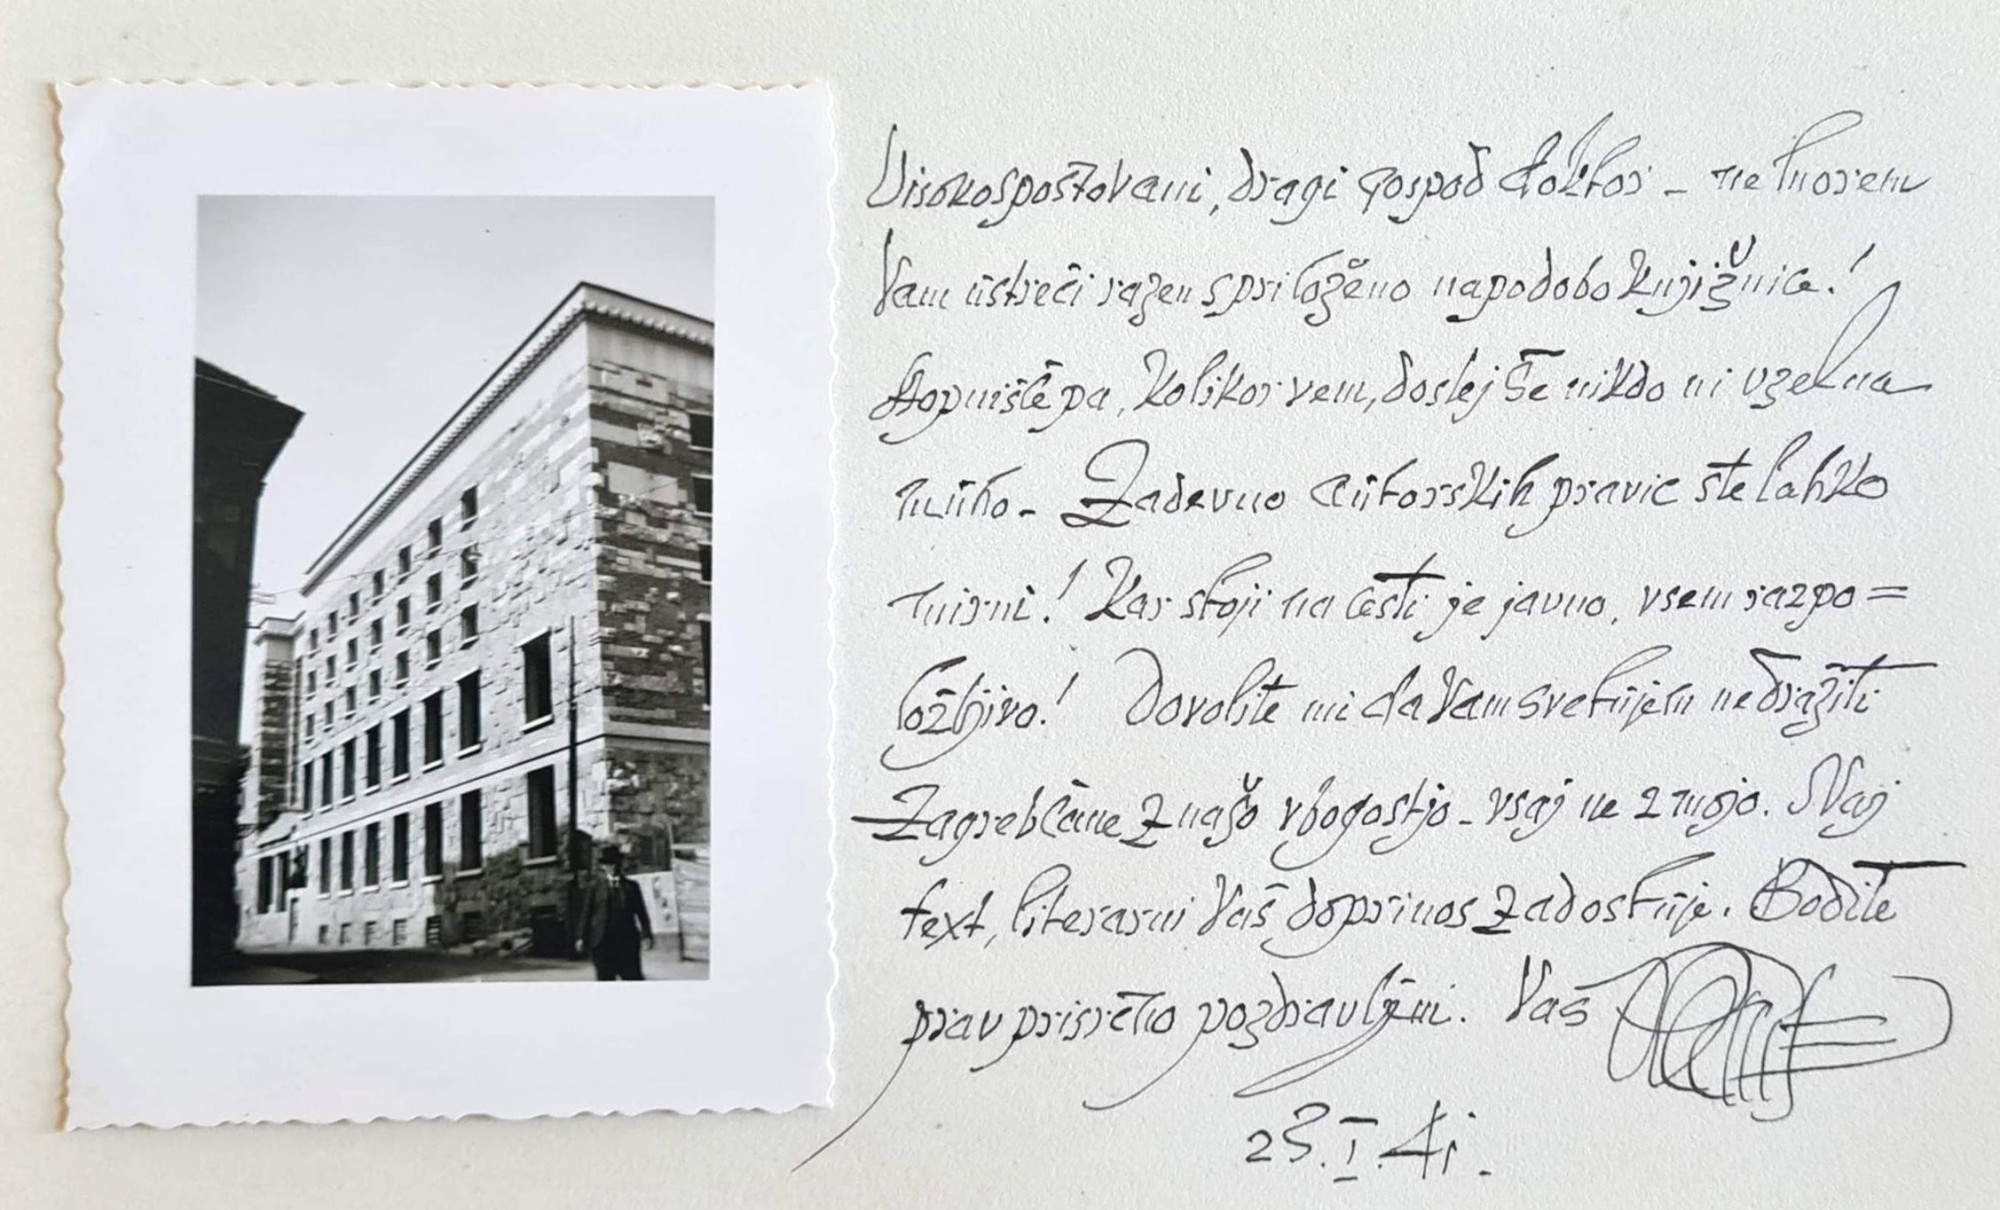 Visokospoštovani, dragi gospod doktor - ne morem
Vam ustreči razen s priloženo napodobo Knjižnice!
Stopnišče pa, kolikor vem, doslej še nikdo ni vzel na
muho. Zadevno autorskih pravic ste lahko
mirni! Kar stoji na cesti je javno, vsem razpo=
ložljivo! Dovolite mi da Vam svetujem ne dražiti
Zagrebčane z našo vbogostjo - vsaj ne z mojo. Naj
text, literarni Vaš doprinos zadostuje. Bodite
prav prisrčno pozdravljeni. Vaš
23.I.41.